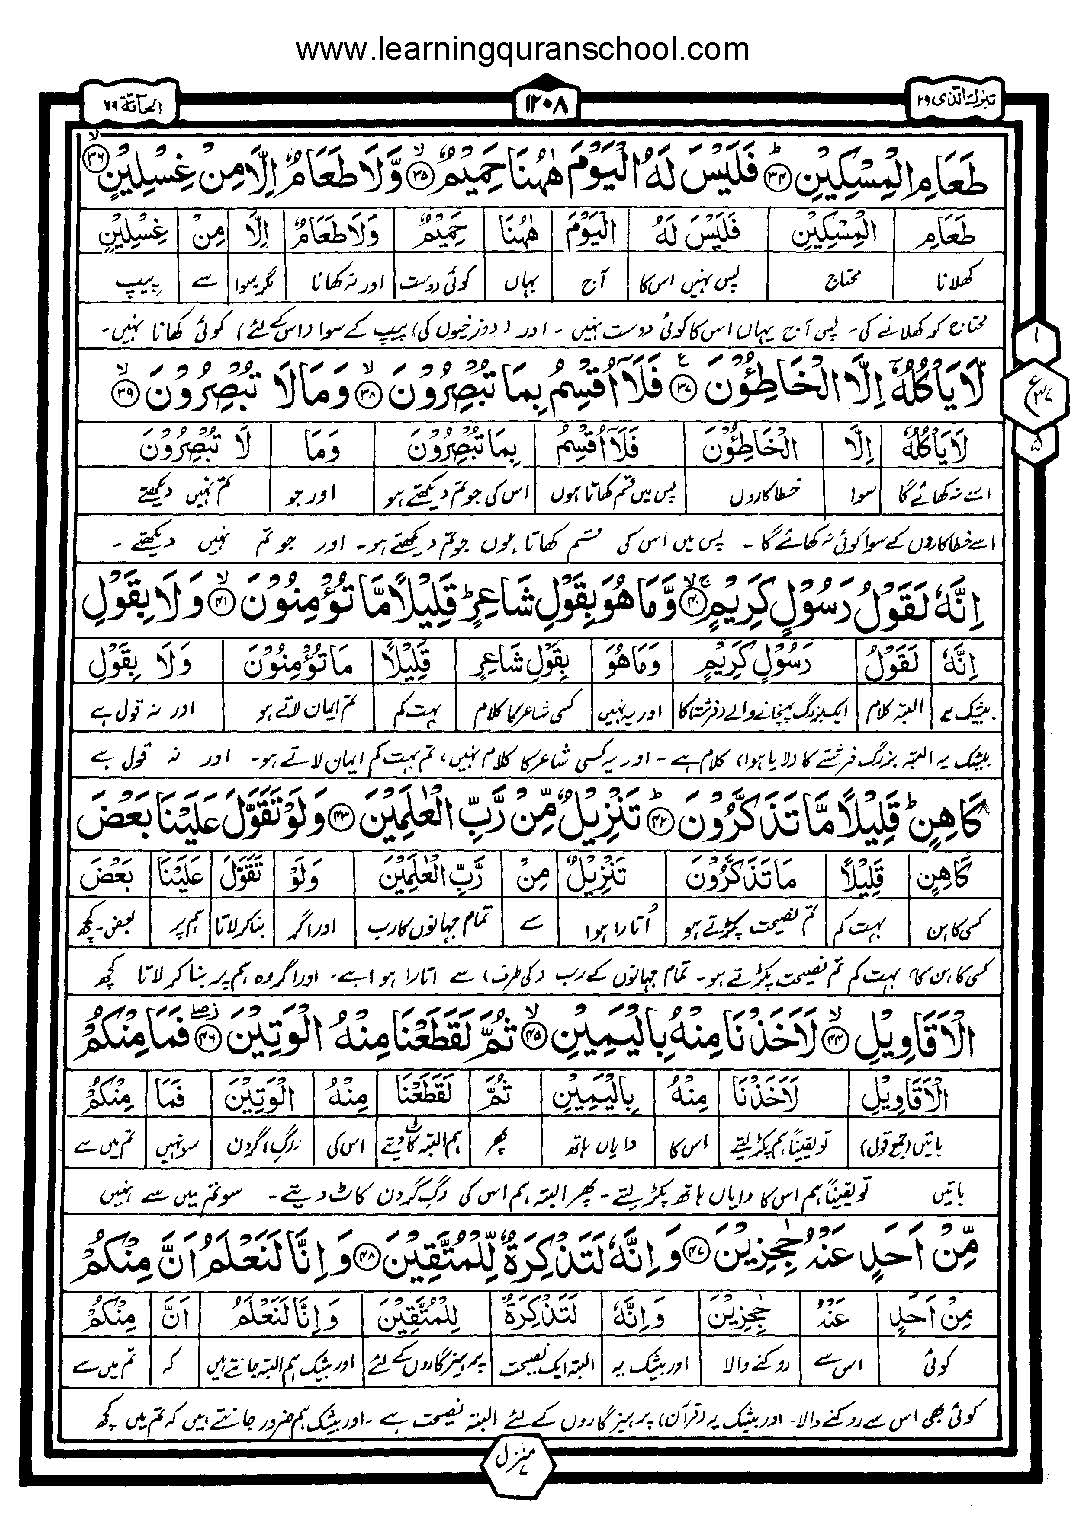 www.learningquranschool.com
تبٰرک الذی ۲۹
۱۲۰۸
الحآقة ۶۹
طَعَامِ الْمِسْكِیْنِؕ۝۳۴ فَلَیْسَ لَهُ الْیَوْمَ هٰهُنَا حَمِیْمٌۙ۝۳۵ وَّلَا طَعَامٌ اِلَّا مِنْ غِسْلِیْنٍۙ۝۳۶
طَعَامِ الْمِسْكِیْنِ فَلَیْسَ لَهُ الْیَوْمَ هٰهُنَا حَمِیْمٌ وَلَا طَعَامٌ اِلَّا مِنْ غِسْلِیْنٍ
کھلانا محتاج پس نہیں اس کا آج یہاں کوئی دوست اور نہ کھانا مگر/سوا سے پیپ
محتاج کو کھلانے کی۔ پس آج یہاں اس کا کوئی دوست نہیں ۔ اور (دوزخیوں کی) پیپ کے سوا (اس کے لئے) کوئی کھانا نہیں۔
۱
لَّا یَاْكُلُهٗۤ اِلَّا الْخَاطِـُٔوْنَ۠۝۳۷ فَلَاۤ اُقْسِمُ بِمَا تُبْصِرُوْنَۙ۝۳۸ وَمَا لَا تُبْصِرُوْنَۙ۝۳۹
ع
۳۷
لَا یَاْكُلُهٗ اِلَّا الْخَاطِـُٔوْنَ فَلَاۤ اُقْسِمُ بِمَا تُبْصِرُوْنَ وَمَا لَا تُبْصِرُوْنَ
۵
اسے نہ کھائے گا سوا خطاکاروں پس میں قسم کھاتا ہوں اس کی جو تم دیکھتے ہو اور جو تم نہیں دیکھتے
اسے خطاکاروں کے سوا کوئی نہ کھائے گا ۔ پس میں اس کی قسم کھاتا ہوں جو تم دیکھتے ہو۔ اور جو تم نہیں دیکھتے ۔
اِنَّهٗ لَقَوْلُ رَسُوْلٍ كَرِیْمٍۚۙ۝۴۰ وَّمَا هُوَ بِقَوْلِ شَاعِرٍؕ قَلِیْلًا مَّا تُؤْمِنُوْنَۙ۝۴۱ وَلَا بِقَوْلِ
اِنَّهٗ لَقَوْلُ رَسُوْلٍ كَرِیْمٍ وَمَا هُوَ بِقَوْلِ شَاعِرٍ قَلِیْلًا مَا تُؤْمِنُوْنَ وَلَا بِقَوْلِ
بیشک یہ البتہ کلام ایک بزرگ پہنچانے والے (فرشتہ) کا اور یہ نہیں کسی شاعر کا کلام بہت کم تم ایمان لاتے ہو اور نہ قول ہے
بیشک یہ البتہ بزرگ فرشتے کا (لایا ہوا) کلام ہے ۔ اور یہ کسی شاعر کا کلام نہیں، تم بہت کم ایمان لاتے ہو۔ اور نہ قول ہے
كَاهِنٍؕ قَلِیْلًا مَّا تَذَكَّرُوْنَؕ۝۴۲ تَنْزِیْلٌ مِّنْ رَّبِّ الْعٰلَمِیْنَ۝۴۳ وَلَوْ تَقَوَّلَ عَلَیْنَا بَعْضَ
كَاهِنٍ قَلِیْلًا مَا تَذَكَّرُوْنَ تَنْزِیْلٌ مِنْ رَّبِّ الْعٰلَمِیْنَ وَلَوْ تَقَوَّلَ عَلَیْنَا بَعْضَ
کسی کاہن بہت کم تم نصیحت پکڑتے ہو اُتارا ہوا سے تمام جہانوں کا رب اور اگر بنا کر لاتا ہم پر بعض۔کچھ
کسی کاہن کا بہت کم تم نصیحت پکڑتے ہو۔ تمام جہانوں کے رب (کی طرف) سے اتارا ہوا ہے۔ اور اگر وہ ہم پر بنا کر لاتا کچھ
الْاَقَاوِیْلِۙ۝۴۴ لَاَخَذْنَا مِنْهُ بِالْیَمِیْنِۙ۝۴۵ ثُمَّ لَقَطَعْنَا مِنْهُ الْوَتِیْنَؗۖ۝۴۶ فَمَا مِنْكُمْ
الْاَقَاوِیْلِ لَاَخَذْنَا مِنْهُ بِالْیَمِیْنِ ثُمَّ لَقَطَعْنَا مِنْهُ الْوَتِیْنَ فَمَا مِنْكُمْ
باتیں (جمع قول) تو یقیناً ہم پکڑ لیتے اس کا دایاں ہاتھ پھر ہم البتہ کاٹ دیتے اس کی رگِ گردن سو نہیں تم میں سے
باتیں تو یقیناً ہم اس کا دایاں ہاتھ پکڑ لیتے ۔ پھر البتہ ہم اس کی رگِ گردن کاٹ دیتے ۔ سو تم میں سے نہیں
مِّنْ اَحَدٍ عَنْهُ حٰجِزِیْنَ۝۴۷ وَاِنَّهٗ لَتَذْكِرَةٌ لِّلْمُتَّقِیْنَ۝۴۸ وَاِنَّا لَنَعْلَمُ اَنَّ مِنْكُمْ
مِنْ اَحَدٍ عَنْهُ حٰجِزِیْنَ وَاِنَّهٗ لَتَذْكِرَةٌ لِلْمُتَّقِیْنَ وَاِنَّا لَنَعْلَمُ اَنَّ مِنْكُمْ
کوئی اس سے روکنے والا اور بیشک یہ البتہ ایک نصیحت پرہیزگاروں کے لئے اور بیشک ہم البتہ جانتے ہیں کہ تم میں سے
کوئی بھی اس سے روکنے والا۔ اور بیشک یہ (قرآن) پرہیزگاروں کے لئے البتہ نصیحت ہے ۔ اور بیشک ہم ضرور جانتے ہیں کہ تم میں کچھ
منزل ۷